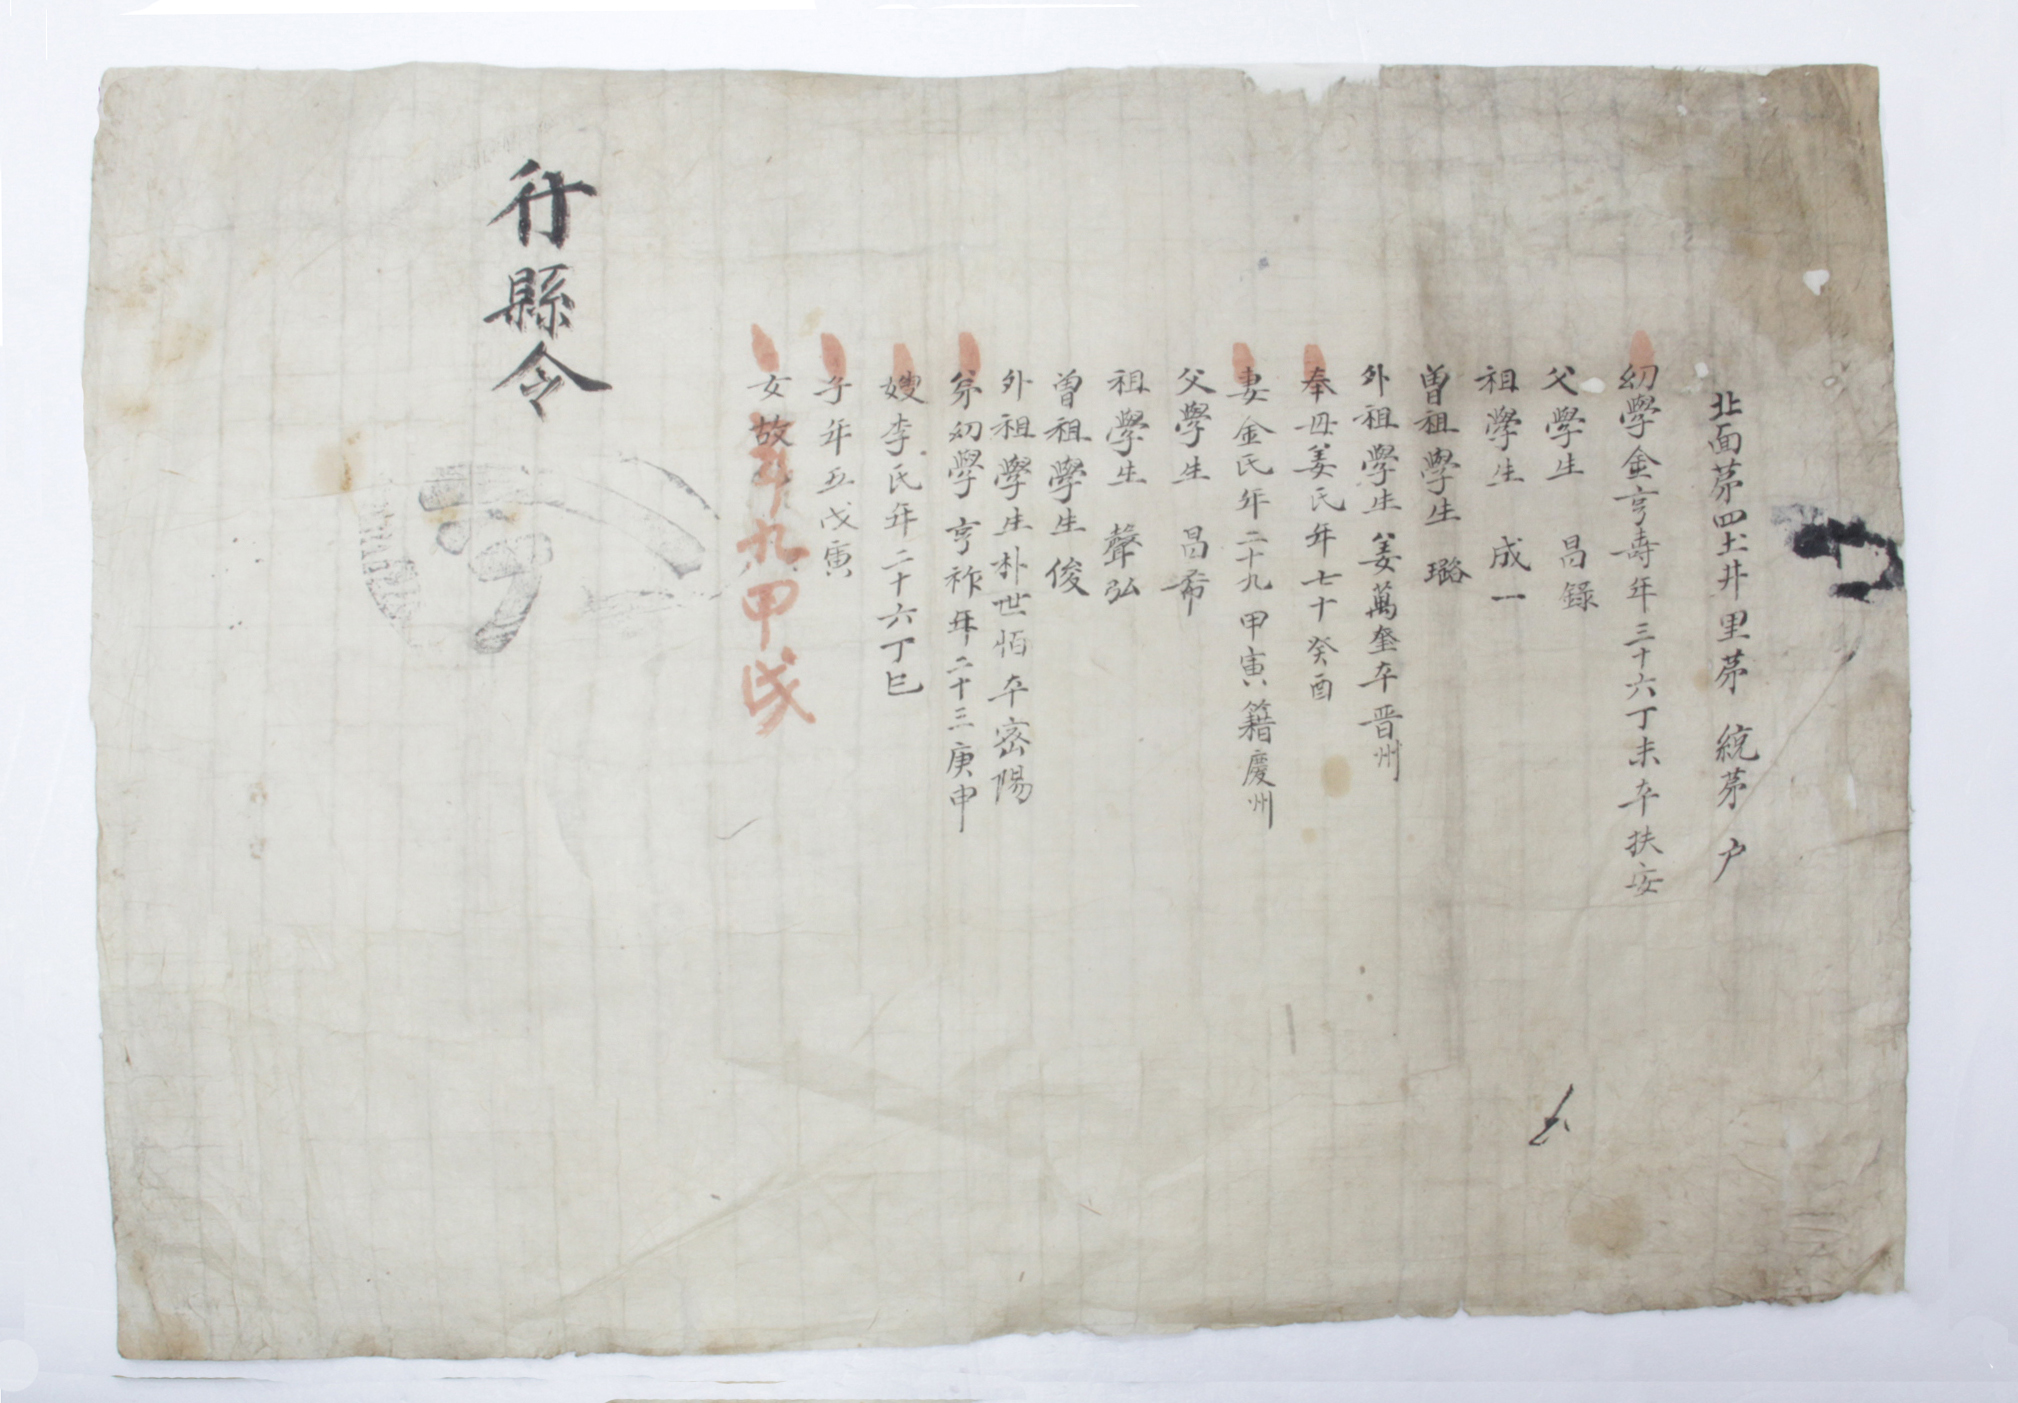 北面苐四土井里苐 統苐 户
幼學金亨壽年三十六丁未本扶安
父學生 昌錄
祖學生 成一
曾祖學生 璐
外祖學生姜萬奎本晋州
奉母姜氏年七十癸酉
妻金氏年二十九甲寅籍慶州
父學生 昌希
祖學生 聲弘
曾祖學生 俊
外祖學生朴世恒本密陽
弟幼學亨祚年二十三庚申
嫂李氏年二十六丁巳
子年五戊寅
女故年九甲戌
行縣令